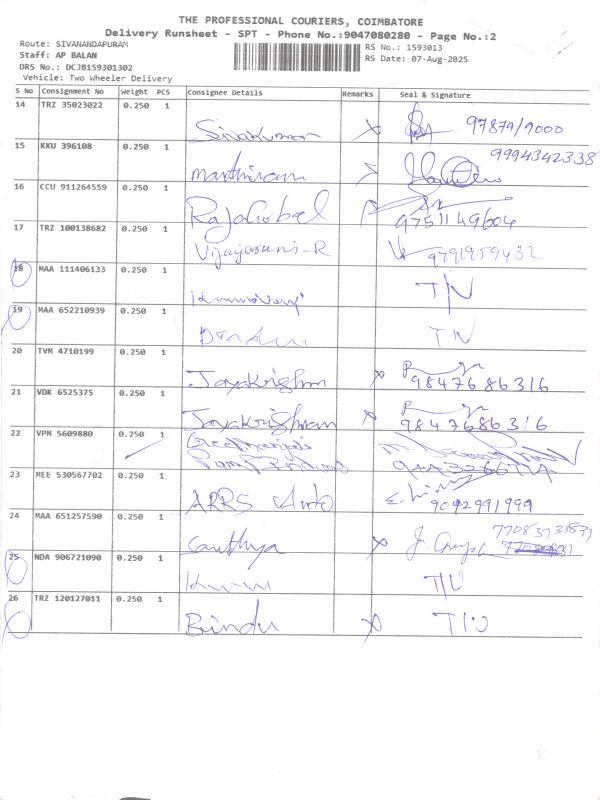 THE PROFESSIONAL COURIERS, COIMBATORE
Delivery Runsheet - SPT - Phone No.:9047080280 - Page No.:2
Route: SIVANANDAPURAM
RS No.: 1593013
Staff: AP BALAN
RS Date: 07-Aug-2025
DRS No.: DCJB159301302
Vehicle: Two Wheeler Delivery
S No Consignment No Weight PCS Consignee Details Remarks Seal & Signature
14 TRZ 35023022 0.250 1
Sivakumar 97879/9000
15 KKU 396108 0.250 1
9994342338
16 CCU 911264559 0.250 1
RajaGobal 9751149604
17 TRZ 100138682 0.250 1
Vijayarani-R 9791959432
18 MAA 111406133 0.250 1
T/N
19 MAA 652210939 0.250 1
TN
20 TVM 4710199 0.250 1
Jayakrishnan 9847686316
21 VDK 6525375 0.250 1
Jayakrishnan 9847686316
22 VPM 5609880 0.250 1
23 MEE 530567702 0.250 1
ARRS Auto 9092991999
24 MAA 651257590 0.250 1
25 NDA 906721090 0.250 1
26 TRZ 120127011 0.250 1
Bindu